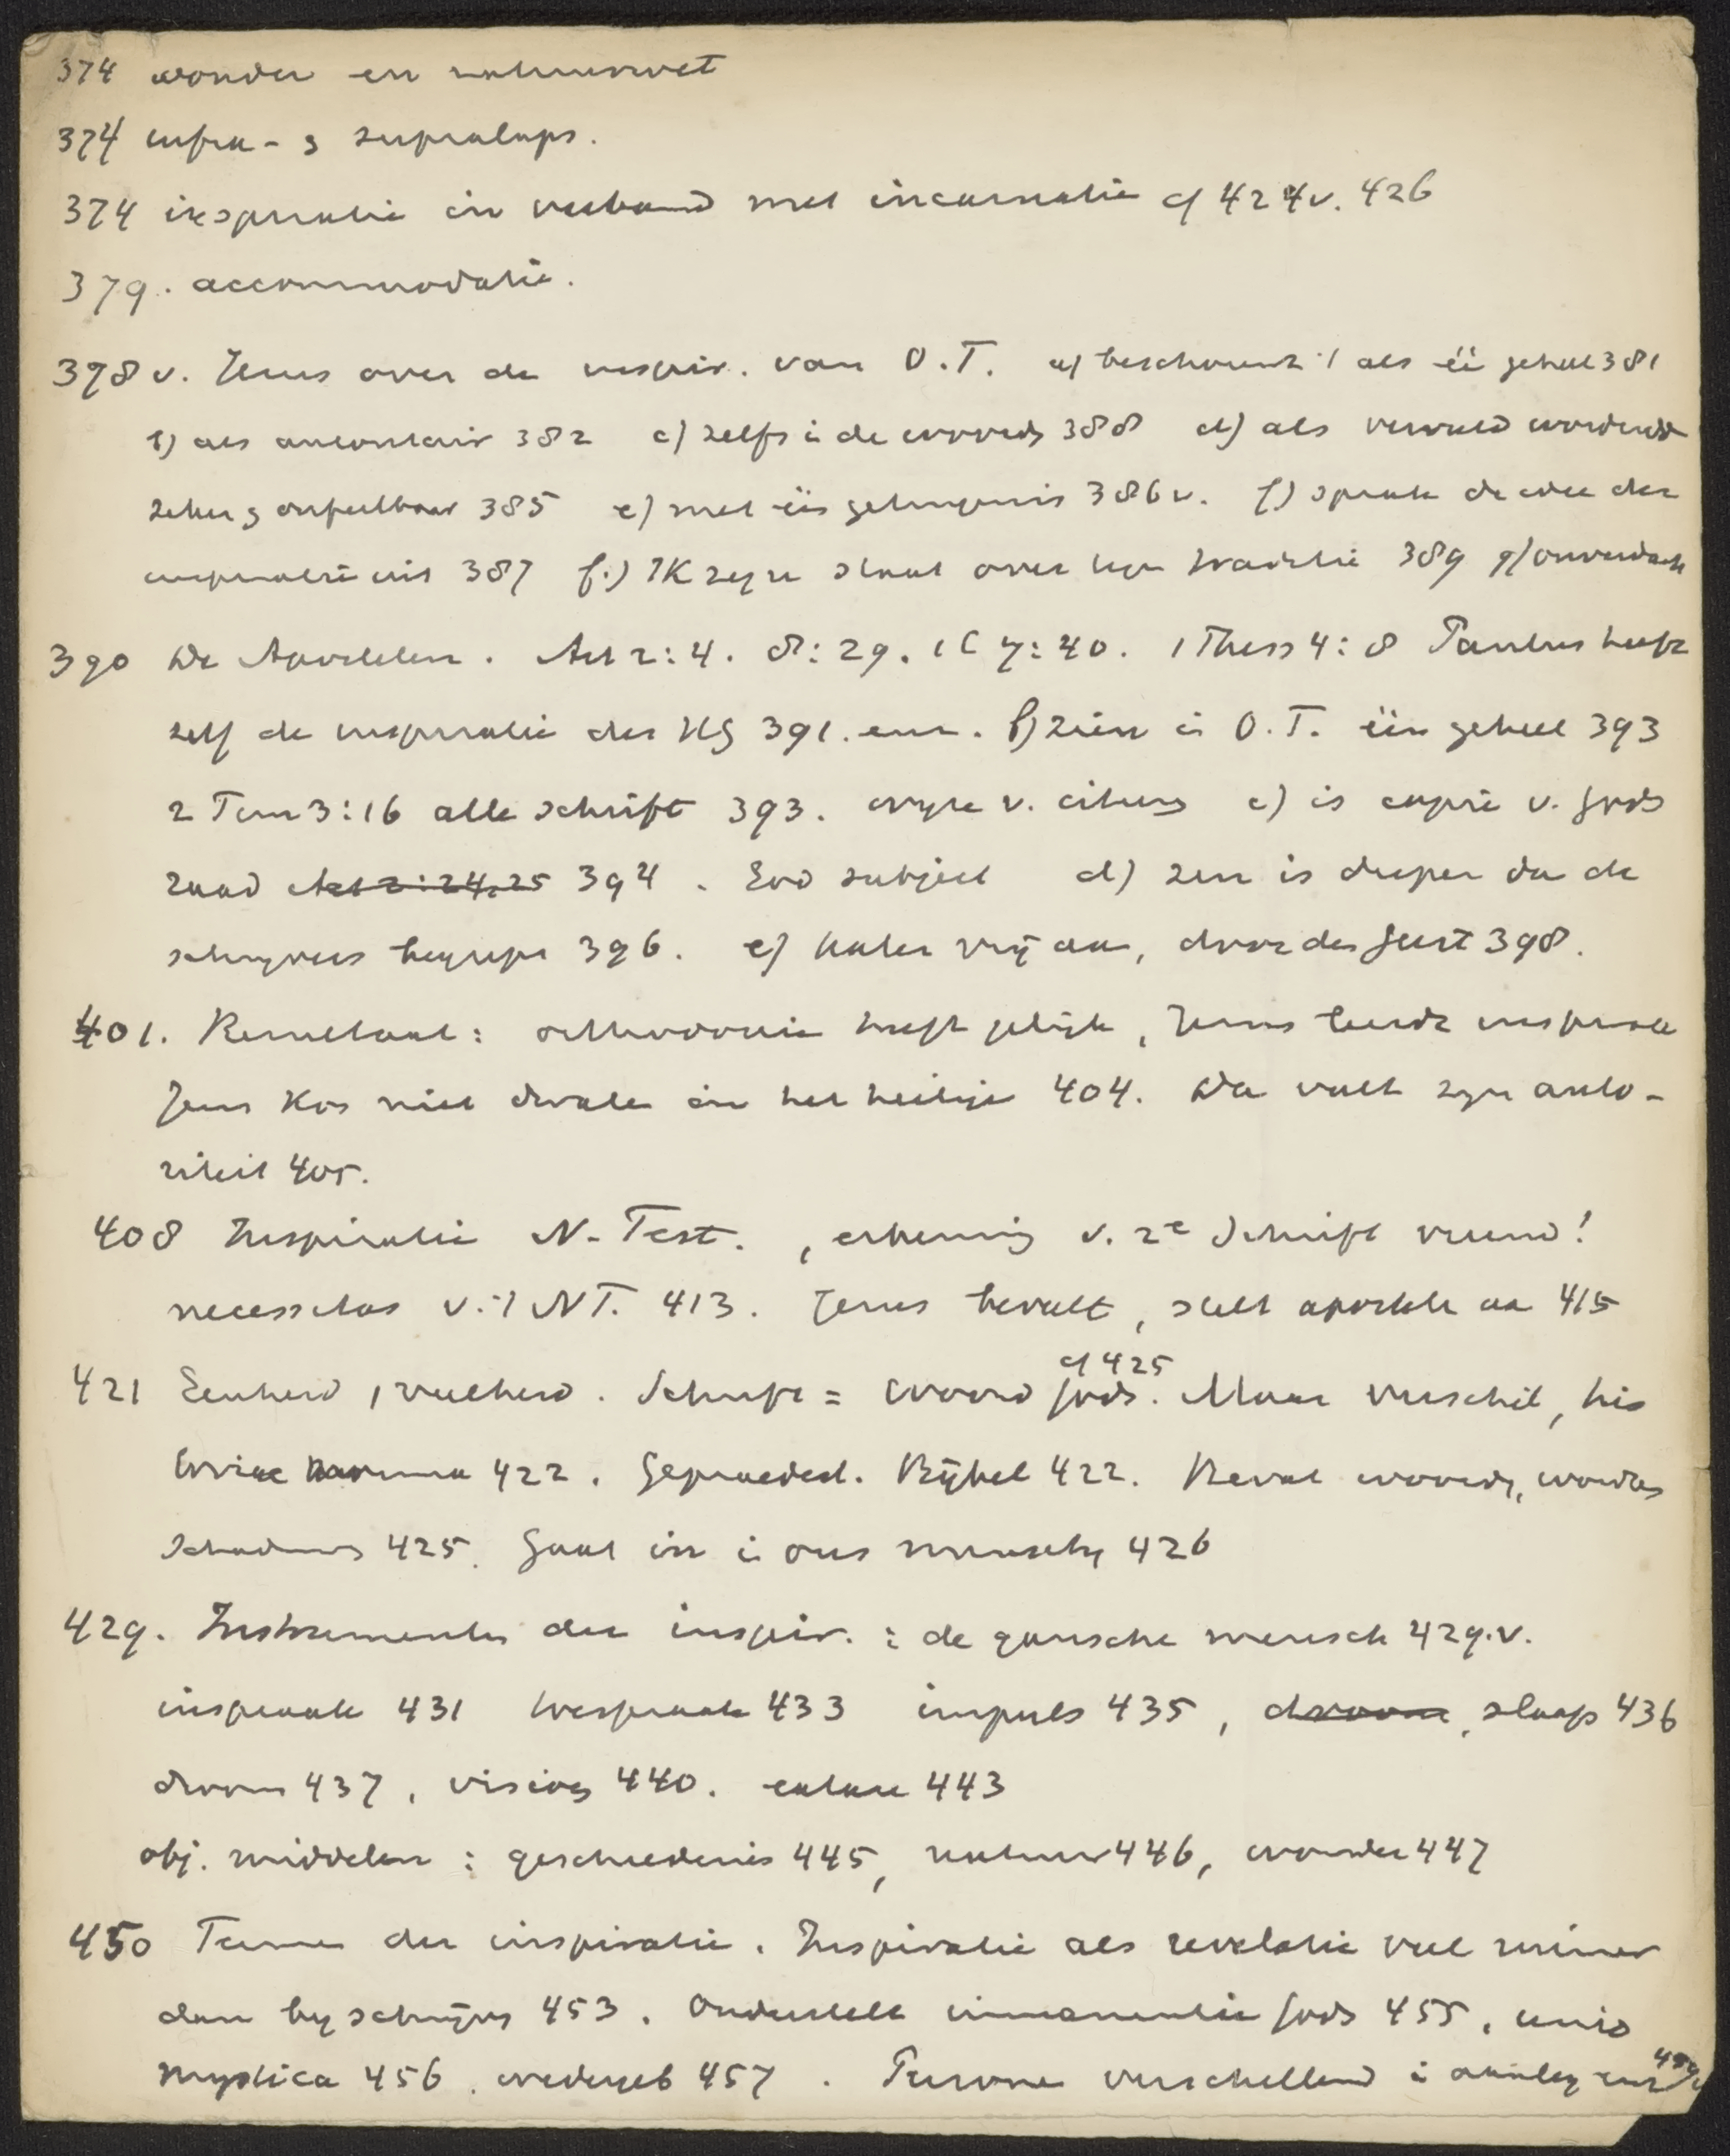 374 wonder en natuurwet
374 infra- & supralaps.
374 inspiratie in verband met incarnatie cf 424v. 426
379. accommodatie.
378 v. Jezus over de inspir. van O.T. a) beschouwt 't als één geheel 381
b) als autoritair 382 c) zelfs in de woorden 388 d) als vervuld wordend
zeker & onfeilbaar 385 e) met één getuigenis 386v. f) sprak de idee der
inspiratie uit 387 f.) IK zeg u slaat over tegen traditie 389 g)
390 De Apostelen. Act 2:4. 8:29. 1 C 7:40. 1 Thess 4:8 Paulus heeft
zelf de inspiratie des HG 391. enz. b) zien in O.T. één geheel 393
2 Tim 3:16 alle schrift 393. wijze v. citeeren c) is copie v. Gods
raad Act 2:24,25 394. God subject d) zin is dieper dan de
schrijvers begrepen 396. e) halen vrij aan, door den Geest 398.
401. Resultaat: orthodoxie heeft gelijk, Jezus leerde inspiratie
Jezus kon niet dwalen in het heilige 404. Dan valt zijn auto-
riteit 405.
408 Inspiratie N. Test., erkenning v. 2e Schrift vreemd!
necessitas v. 't NT. 413. Jezus beveelt, stelt apostelen aan 415
421 Eenheid, veelheid. Schrift = Woord Gods. cf 425 Maar verschil, his
toriae norma 422. Gepraedest. Bijbel 422. Bevat woorden, worden
schaduwen 425. Gaat in in ons menschen 426
429. Instrumenten der inspir.: de gansche mensch 429.v.
inspraak 431 toespraak 433 impuls 435, droom, slaap 436
droom 437, visioen 440. extase 443
obj. middelen: geschiedenis 445, natuur 446, wonder 447
450 der inspiratie. Inspiratie als revelatie veel ruimer
dan bij schrijvers 453. Onderstelt immanentie Gods 455, unio
mystica 456. wedergeb 457. Personen verschillend in aanleg enz